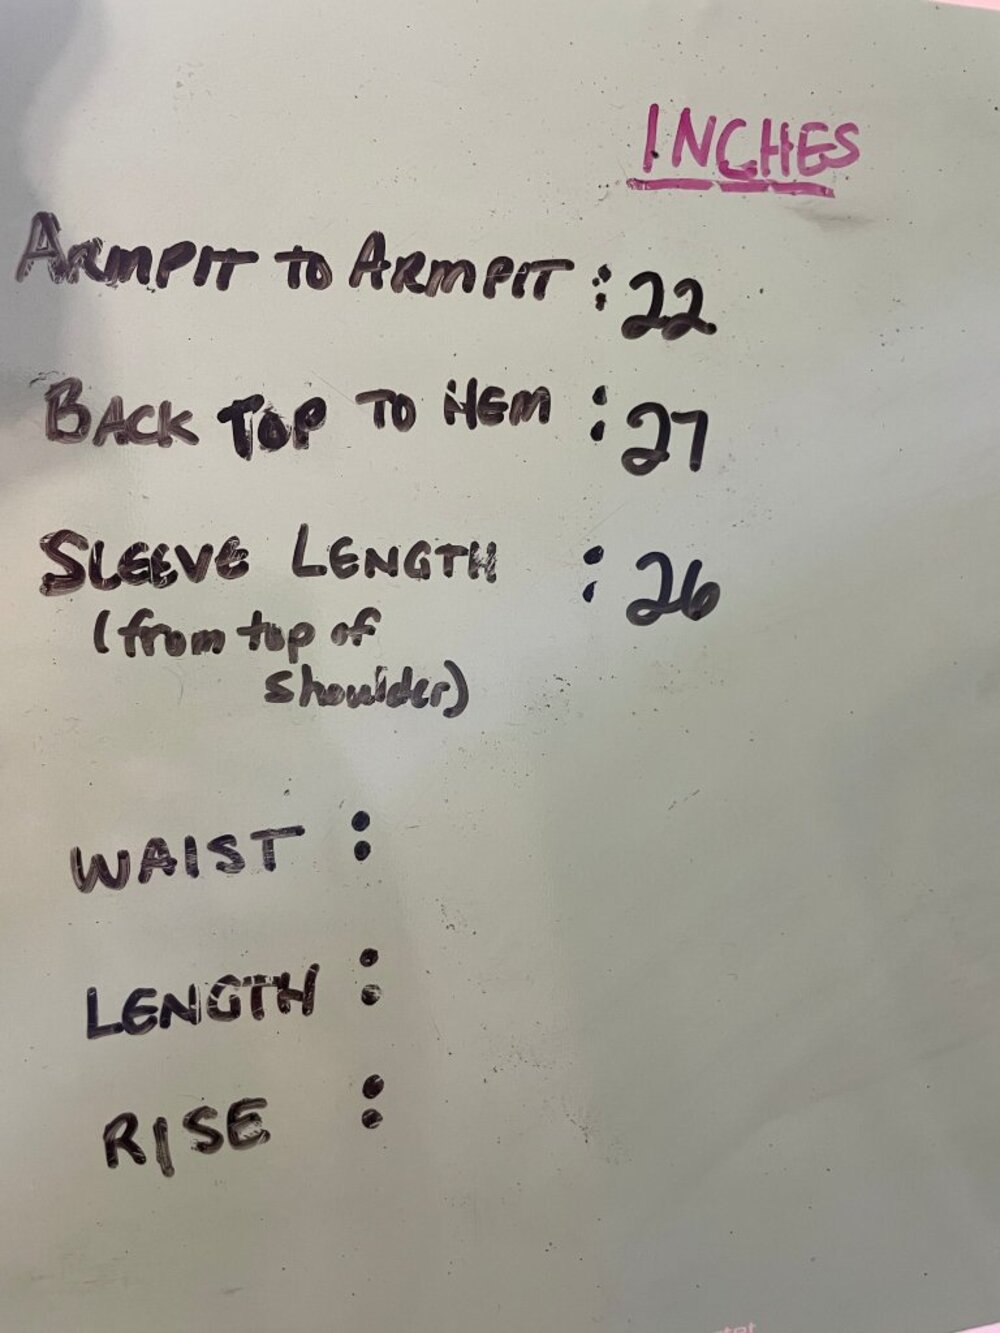 INCHES
ARMPIT TO ARMPIT : 22
BACK TOP TO HEM : 27
SLEEVE LENGTH : 26
(from top of
shoulder)
WAIST :
LENGTH :
RISE :